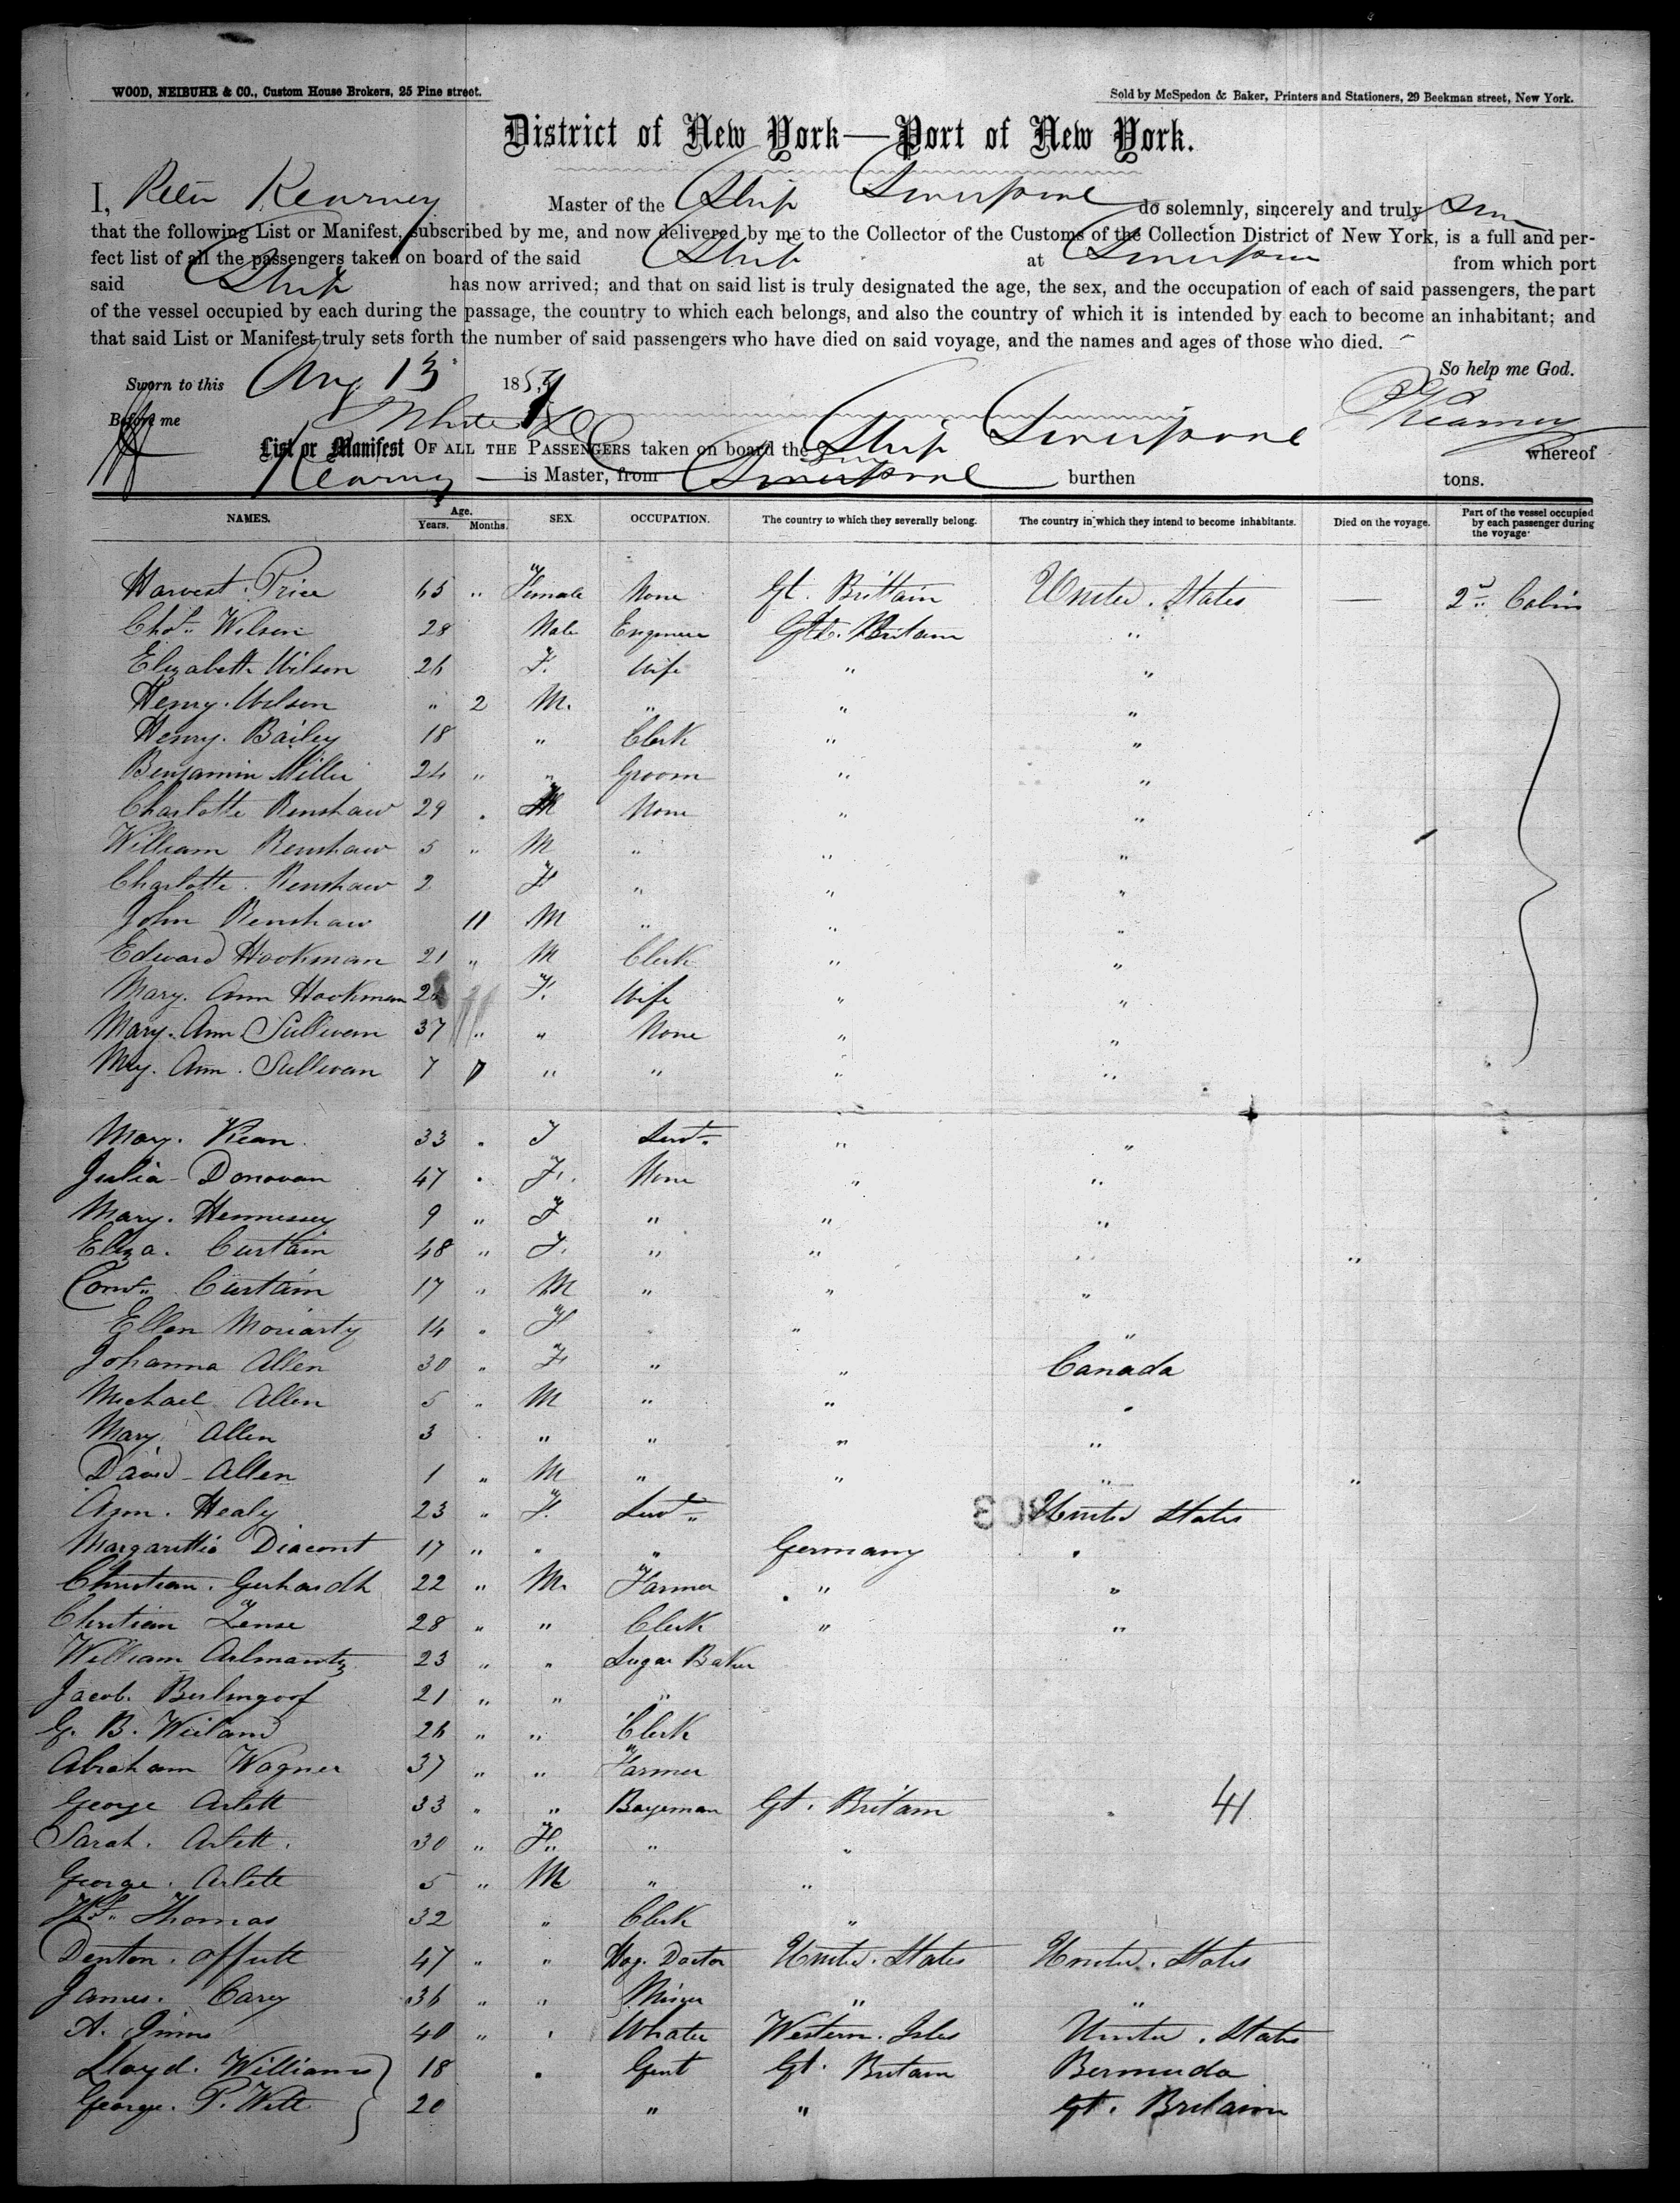 WOOD, NEIBUHR & CO., Custom House Brokers, 25 Pine street.
Sold by McSpedon & Baker, Printers and Stationers, 29 Beekman street, New York.
District of New York—Port of New York.
I, Peter Kearney Master of the Ship Liverpool do solemnly, sincerely and truly
that the following List or Manifest, subscribed by me, and now delivered by me to the Collector of the Customs of the Collection District of New York, is a full and per-
fect list of all the passengers taken on board of the said Ship at Liverpool from which port
said Ship has now arrived; and that on said list is truly designated the age, the sex, and the occupation of each of said passengers, the part
of the vessel occupied by each during the passage, the country to which each belongs, and also the country of which it is intended by each to become an inhabitant; and
that said List or Manifest truly sets forth the number of said passengers who have died on said voyage, and the names and ages of those who died.
So help me God.
Sworn to this Aug 13 185
Before me
P Kearney
List or Manifest OF ALL THE PASSENGERS taken on board the Ship Liverpool whereof
Kearney is Master, from Liverpool burthen tons.
NAMES. Age. Years. Months. SEX. OCCUPATION. The country to which they severally belong. The country in which they intend to become inhabitants. Died on the voyage. Part of the vessel occupied by each passenger during the voyage
Harvest Price 65 " Female None Gt. Brittain United States — 2d Cabin
Chas. Wilson 28 Male Engineer Gt. Britain "
Elizabeth Wilson 26 F. Wife " "
Henry Wilson " 2 M. " " "
Henry Bailey 18 " Clerk " "
Benjamin Miller 24 " " Groom " "
Charlotte Renshaw 29 " None " "
William Renshaw 5 " M " " "
Charlotte Renshaw 2 F " " "
John Renshaw 11 M " " "
Edward Hookman 21 " M Clerk " "
Mary Ann Hookman F. Wife " "
Mary Ann Sullivan 37 " " None " "
May. Ann. Sullivan 7 " " " "
Mary. Kean 33 " F Servt. " "
Julia Donovan 47 " F. None " "
Mary. Hennessey 9 " F " " "
Eliza. Curtain 48 " F. " " " "
Curtain 17 " M " " "
Ellen Moriarty 14 " F " "
Johanna Allen 30 " F " " Canada
Michael Allen 5 " M " " "
Mary Allen 3 " " " "
David Allen 1 " M " " " "
Ann. Healy 23 " F. Servt. United States
Margarettia Diacont 17 " " " Germany "
Christian. Gerhardh 22 " M. Farmer " "
Christian Zense 28 " " Clerk " "
William Arlmantz 23 " " Sugar Baker
Jacob. Berlingoof 21 " " "
G. B. Weiland 26 " " Clerk
Abraham Wagner 37 " " Farmer
George Arlett 33 " " Gt. Britain " 41
Sarah. Arlett. 30 " F. " "
George. Arlett 5 " M " "
Thomas 32 " Clerk "
Denton. Offutt 47 " " Doctor United. States United. States
James. Carey 36 " " Miner " "
A. 40 " " Whaler Western. Isles United. States
Lloyd. Williams 18 " Gent Gt. Britain Bermuda
George. P. Witt 20 " " Gt. Britain